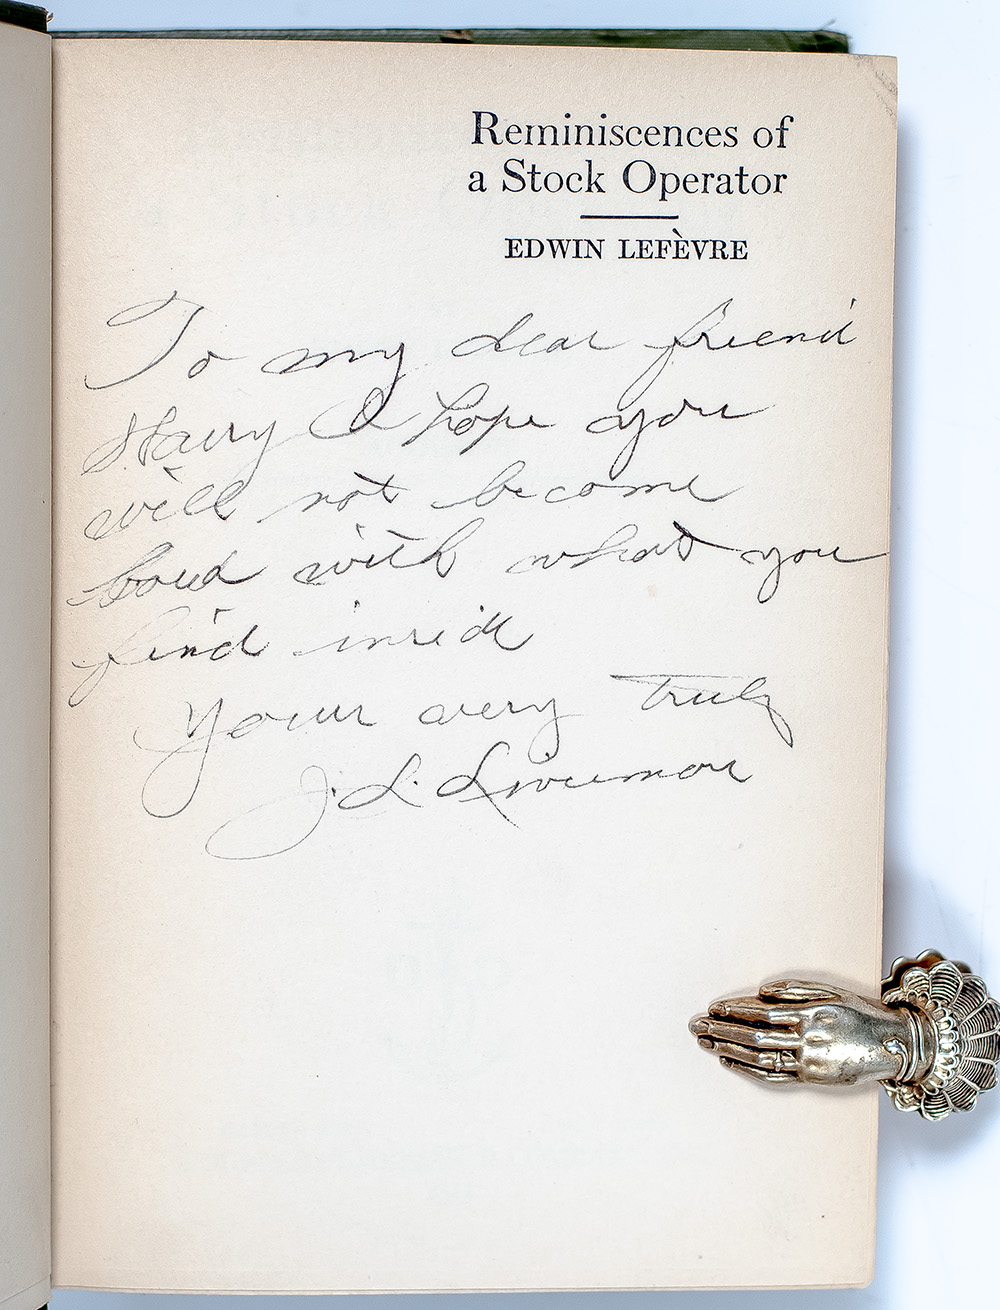 Reminiscences of
a Stock Operator
EDWIN LEFÈVRE
To my dear friend
Harry I hope you
will not become
bored with what you
find inside
Yours very truly
J. L. Livermore